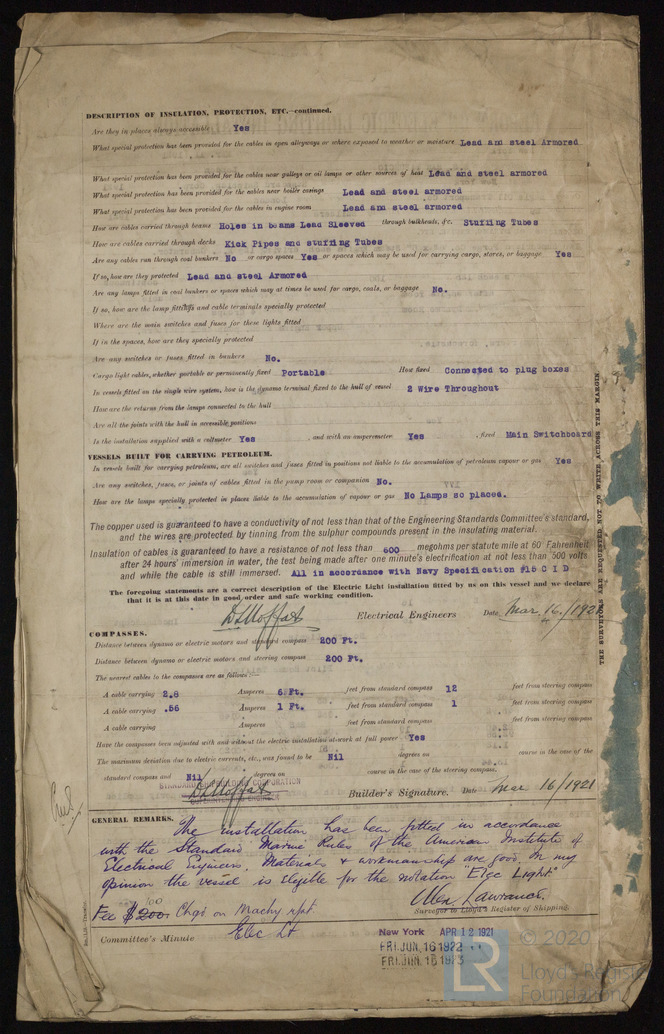 DESCRIPTION OF INSULATION, PROTECTION, ETC.—continued.
Are they in places always accessible Yes
What special protection has been provided for the cables in open alleyways or where exposed to weather or moisture Lead and steel Armored
What special protection has been provided for the cables near galleys or oil lamps or other sources of heat Lead and steel armored
What special protection has been provided for the cables near boiler casings Lead and steel armored
What special protection has been provided for the cables in engine room Lead and steel armored
How are cables carried through beams Holes in beams Lead Sleeved through bulkheads, &c. Stuffing Tubes
How are cables carried through decks Kick Pipes and stuffing Tubes
Are any cables run through coal bunkers No or cargo spaces Yes or spaces which may be used for carrying cargo, stores, or baggage Yes
If so, how are they protected Lead and steel Armored
Are any lamps fitted in coal bunkers or spaces which may at times be used for cargo, coals, or baggage No.
If so, how are the lamp fittings and cable terminals specially protected
Where are the main switches and fuses for these lights fitted
If in the spaces, how are they specially protected
Are any switches or fuses fitted in bunkers No.
Cargo light cables, whether portable or permanently fixed Portable How fixed Connected to plug boxes
In vessels fitted on the single wire system, how is the dynamo terminal fixed to the hull of vessel 2 Wire Throughout
How are the returns from the lamps connected to the hull
Are all the joints with the hull in accessible positions
Is the installation supplied with a voltmeter Yes , and with an amperemeter Yes , fixed Main Switchboard
VESSELS BUILT FOR CARRYING PETROLEUM.
In vessels built for carrying petroleum, are all switches and fuses fitted in positions not liable to the accumulation of petroleum vapour or gas Yes
Are any switches, fuses, or joints of cables fitted in the pump room or companion No.
How are the lamps specially protected in places liable to the accumulation of vapour or gas No Lamps so placed.
The copper used is guaranteed to have a conductivity of not less than that of the Engineering Standards Committee's standard,
and the wires are protected by tinning from the sulphur compounds present in the insulating material.
Insulation of cables is guaranteed to have a resistance of not less than 600 megohms per statute mile at 60° Fahrenheit
after 24 hours' immersion in water, the test being made after one minute's electrification at not less than 500 volts
and while the cable is still immersed. All in accordance with Navy Specification #15 C I D
The foregoing statements are a correct description of the Electric Light installation fitted by us on this vessel and we declare
that it is at this date in good order and safe working condition.
D L Moffat Electrical Engineers Date Mar. 16./1921
COMPASSES.
Distance between dynamo or electric motors and standard compass 200 Ft.
Distance between dynamo or electric motors and steering compass 200 Ft.
The nearest cables to the compasses are as follows:—
A cable carrying 2.8 Amperes 6 Ft. feet from standard compass 12 feet from steering compass
A cable carrying .56 Amperes 1 Ft. feet from standard compass 1 feet from steering compass
A cable carrying Amperes feet from standard compass feet from steering compass
Have the compasses been adjusted with and without the electric installation at work at full power Yes
The maximum deviation due to electric currents, etc., was found to be Nil degrees on course in the case of the
standard compass and Nil degrees on course in the case of the steering compass.
STANDARD SHIPBUILDING CORPORATION
D L Moffat Builder's Signature. Date Mar. 16/1921
GENERAL REMARKS. The installation has been fitted in accordance
with the Standard Marine Rules of the American Institute of
Electrical Engineers. Materials & workmanship are good. In my
opinion the vessel is eligible for the notation "Elec Light."
Alex Lawrance.
Surveyor to Lloyd's Register of Shipping.
Fee $200.00 Chgd on Machy rpt
Committee's Minute Elec Lt
New York APR 12 1921
FRI. JUN. 16 1922
FRI. JUN. 16 1923
THE SURVEYORS ARE REQUESTED NOT TO WRITE ACROSS THIS MARGIN.
LR
© 2020
Lloyd's Register
Foundation